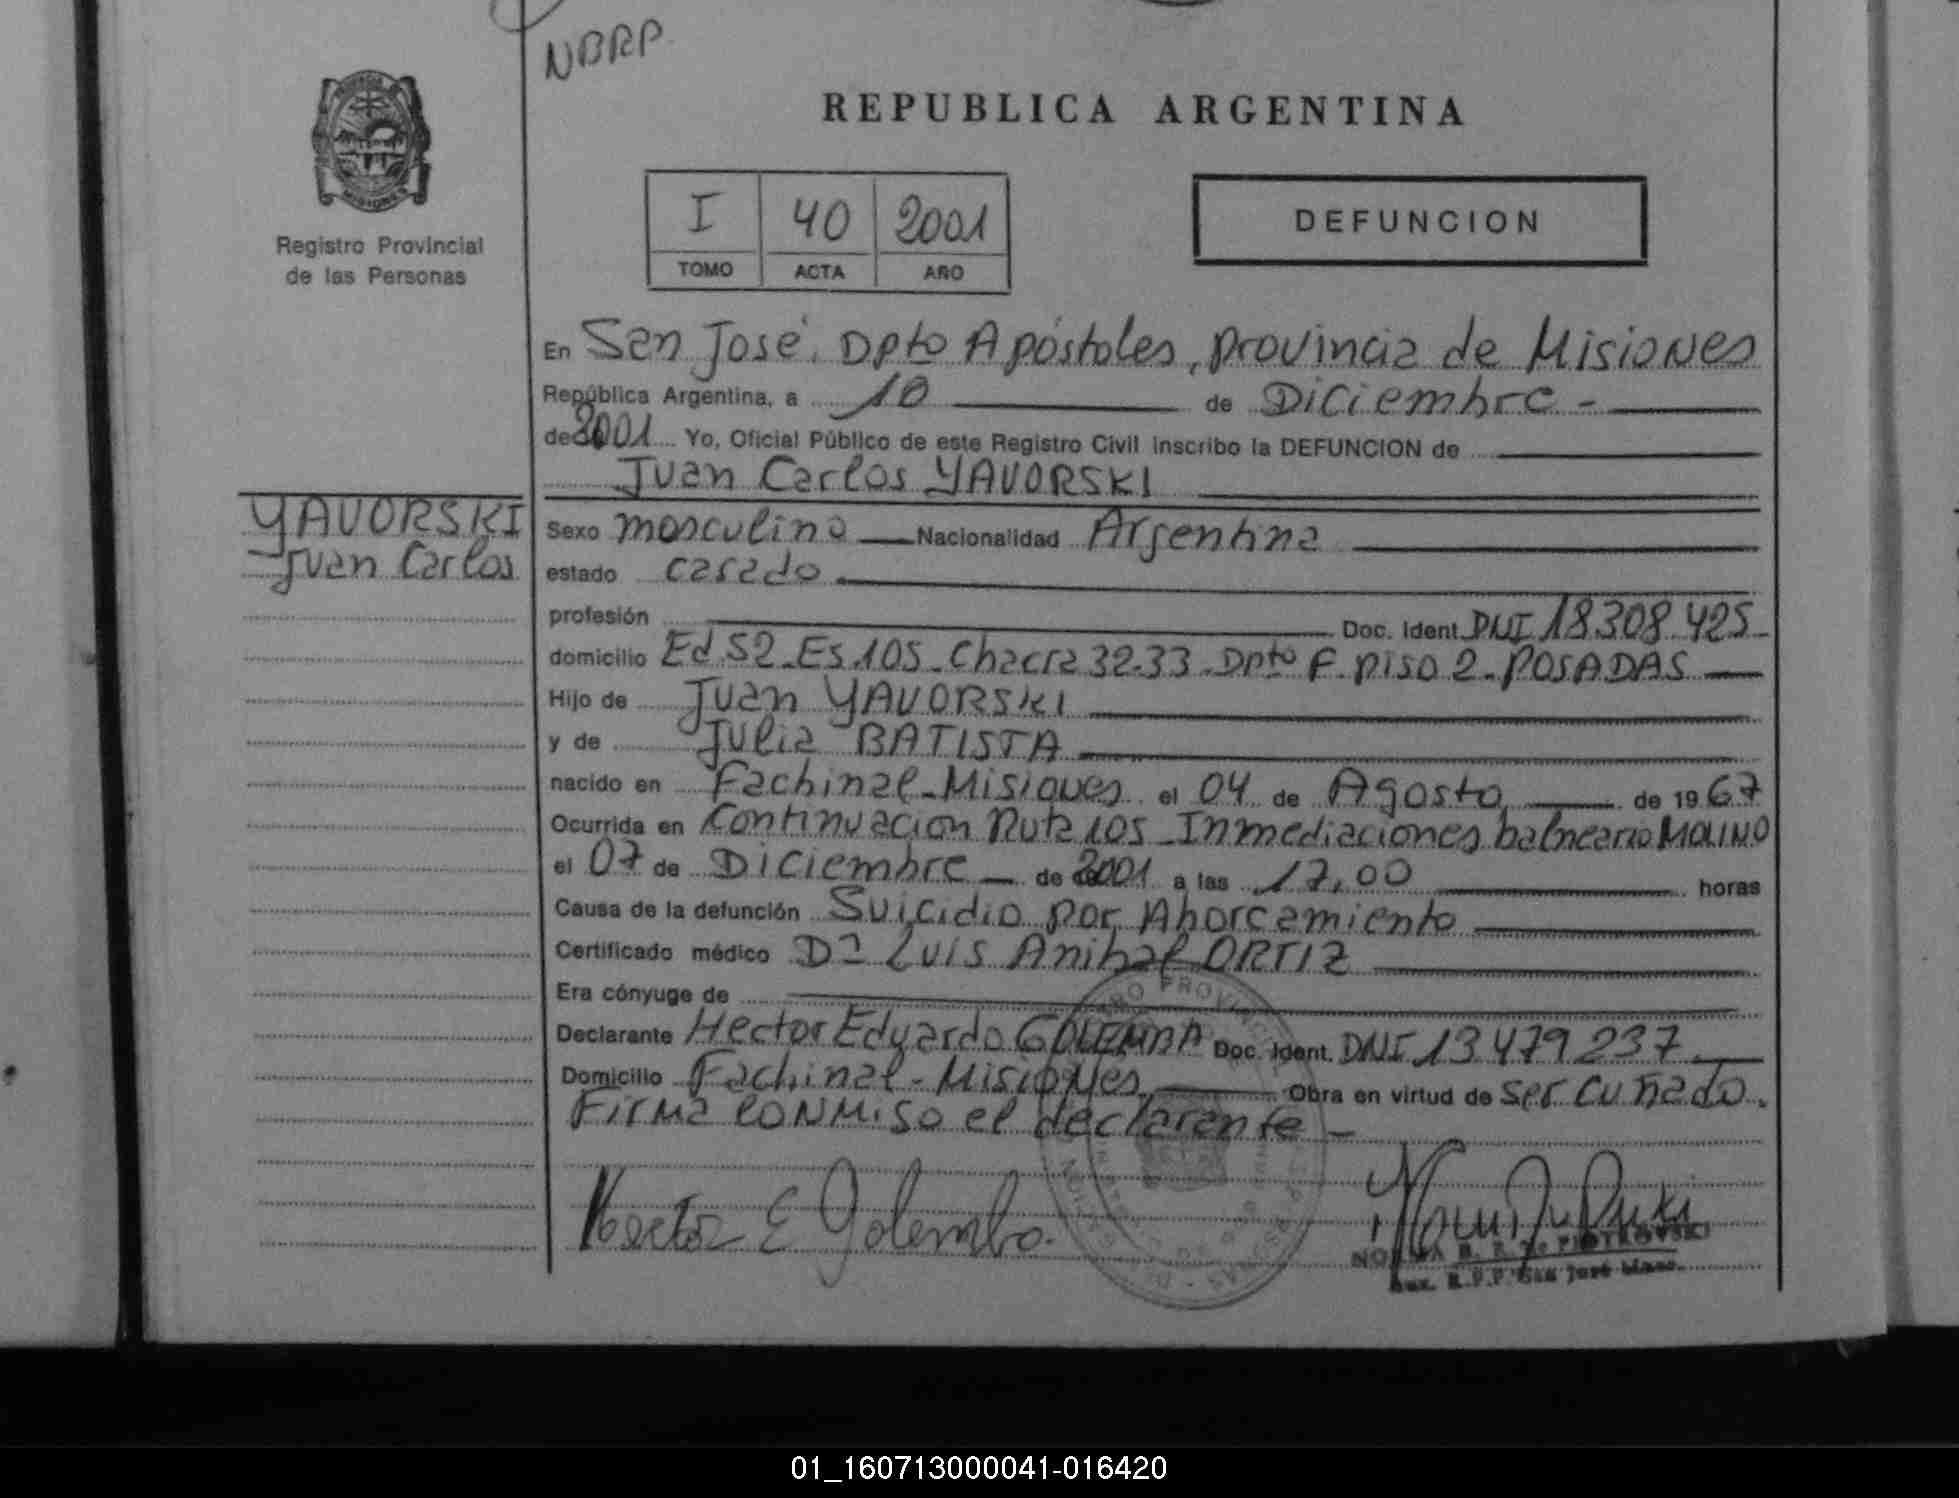 NBRP.
REPUBLICA ARGENTINA
MISIONES
Registro Provincial
de las Personas
I 40 2001
TOMO ACTA AÑO
DEFUNCION
En San José. Dpto Apóstoles, provincia de Misiones
República Argentina, a 10 de Diciembre -
de 2001 Yo, Oficial Público de este Registro Civil inscribo la DEFUNCION de
Juan Carlos YAVORSKI
YAVORSKI
Juan Carlos
Sexo masculino Nacionalidad Argentina
estado casado
profesión Doc. Ident DNI 18.308.425
domicilio Ed 52 - Es 105 - Chacra 32-33 - Dpto F. piso 2 - POSADAS
Hijo de Juan YAVORSKI
y de Julia BATISTA
nacido en Fachinal - Misiones el 04 de Agosto de 1967
Ocurrida en Continuacion Ruta 105 - Inmediaciones balneario MOLINO
el 07 de Diciembre de 2001 a las 17,00 horas
Causa de la defunción Suicidio por Ahorcamiento
Certificado médico Dr Luis Anibal ORTIZ
Era cónyuge de
Declarante Hector Eduardo Doc. Ident. DNI 13 479 237
Domicilio Fachinal - Misiones Obra en virtud de ser cuñado.
Firma conmiso el declarante -
Hector E Golembo.
NORMA B. R. de PIOTROVSKI
Aux. R.P.P. San José Mnes.
01_160713000041-016420